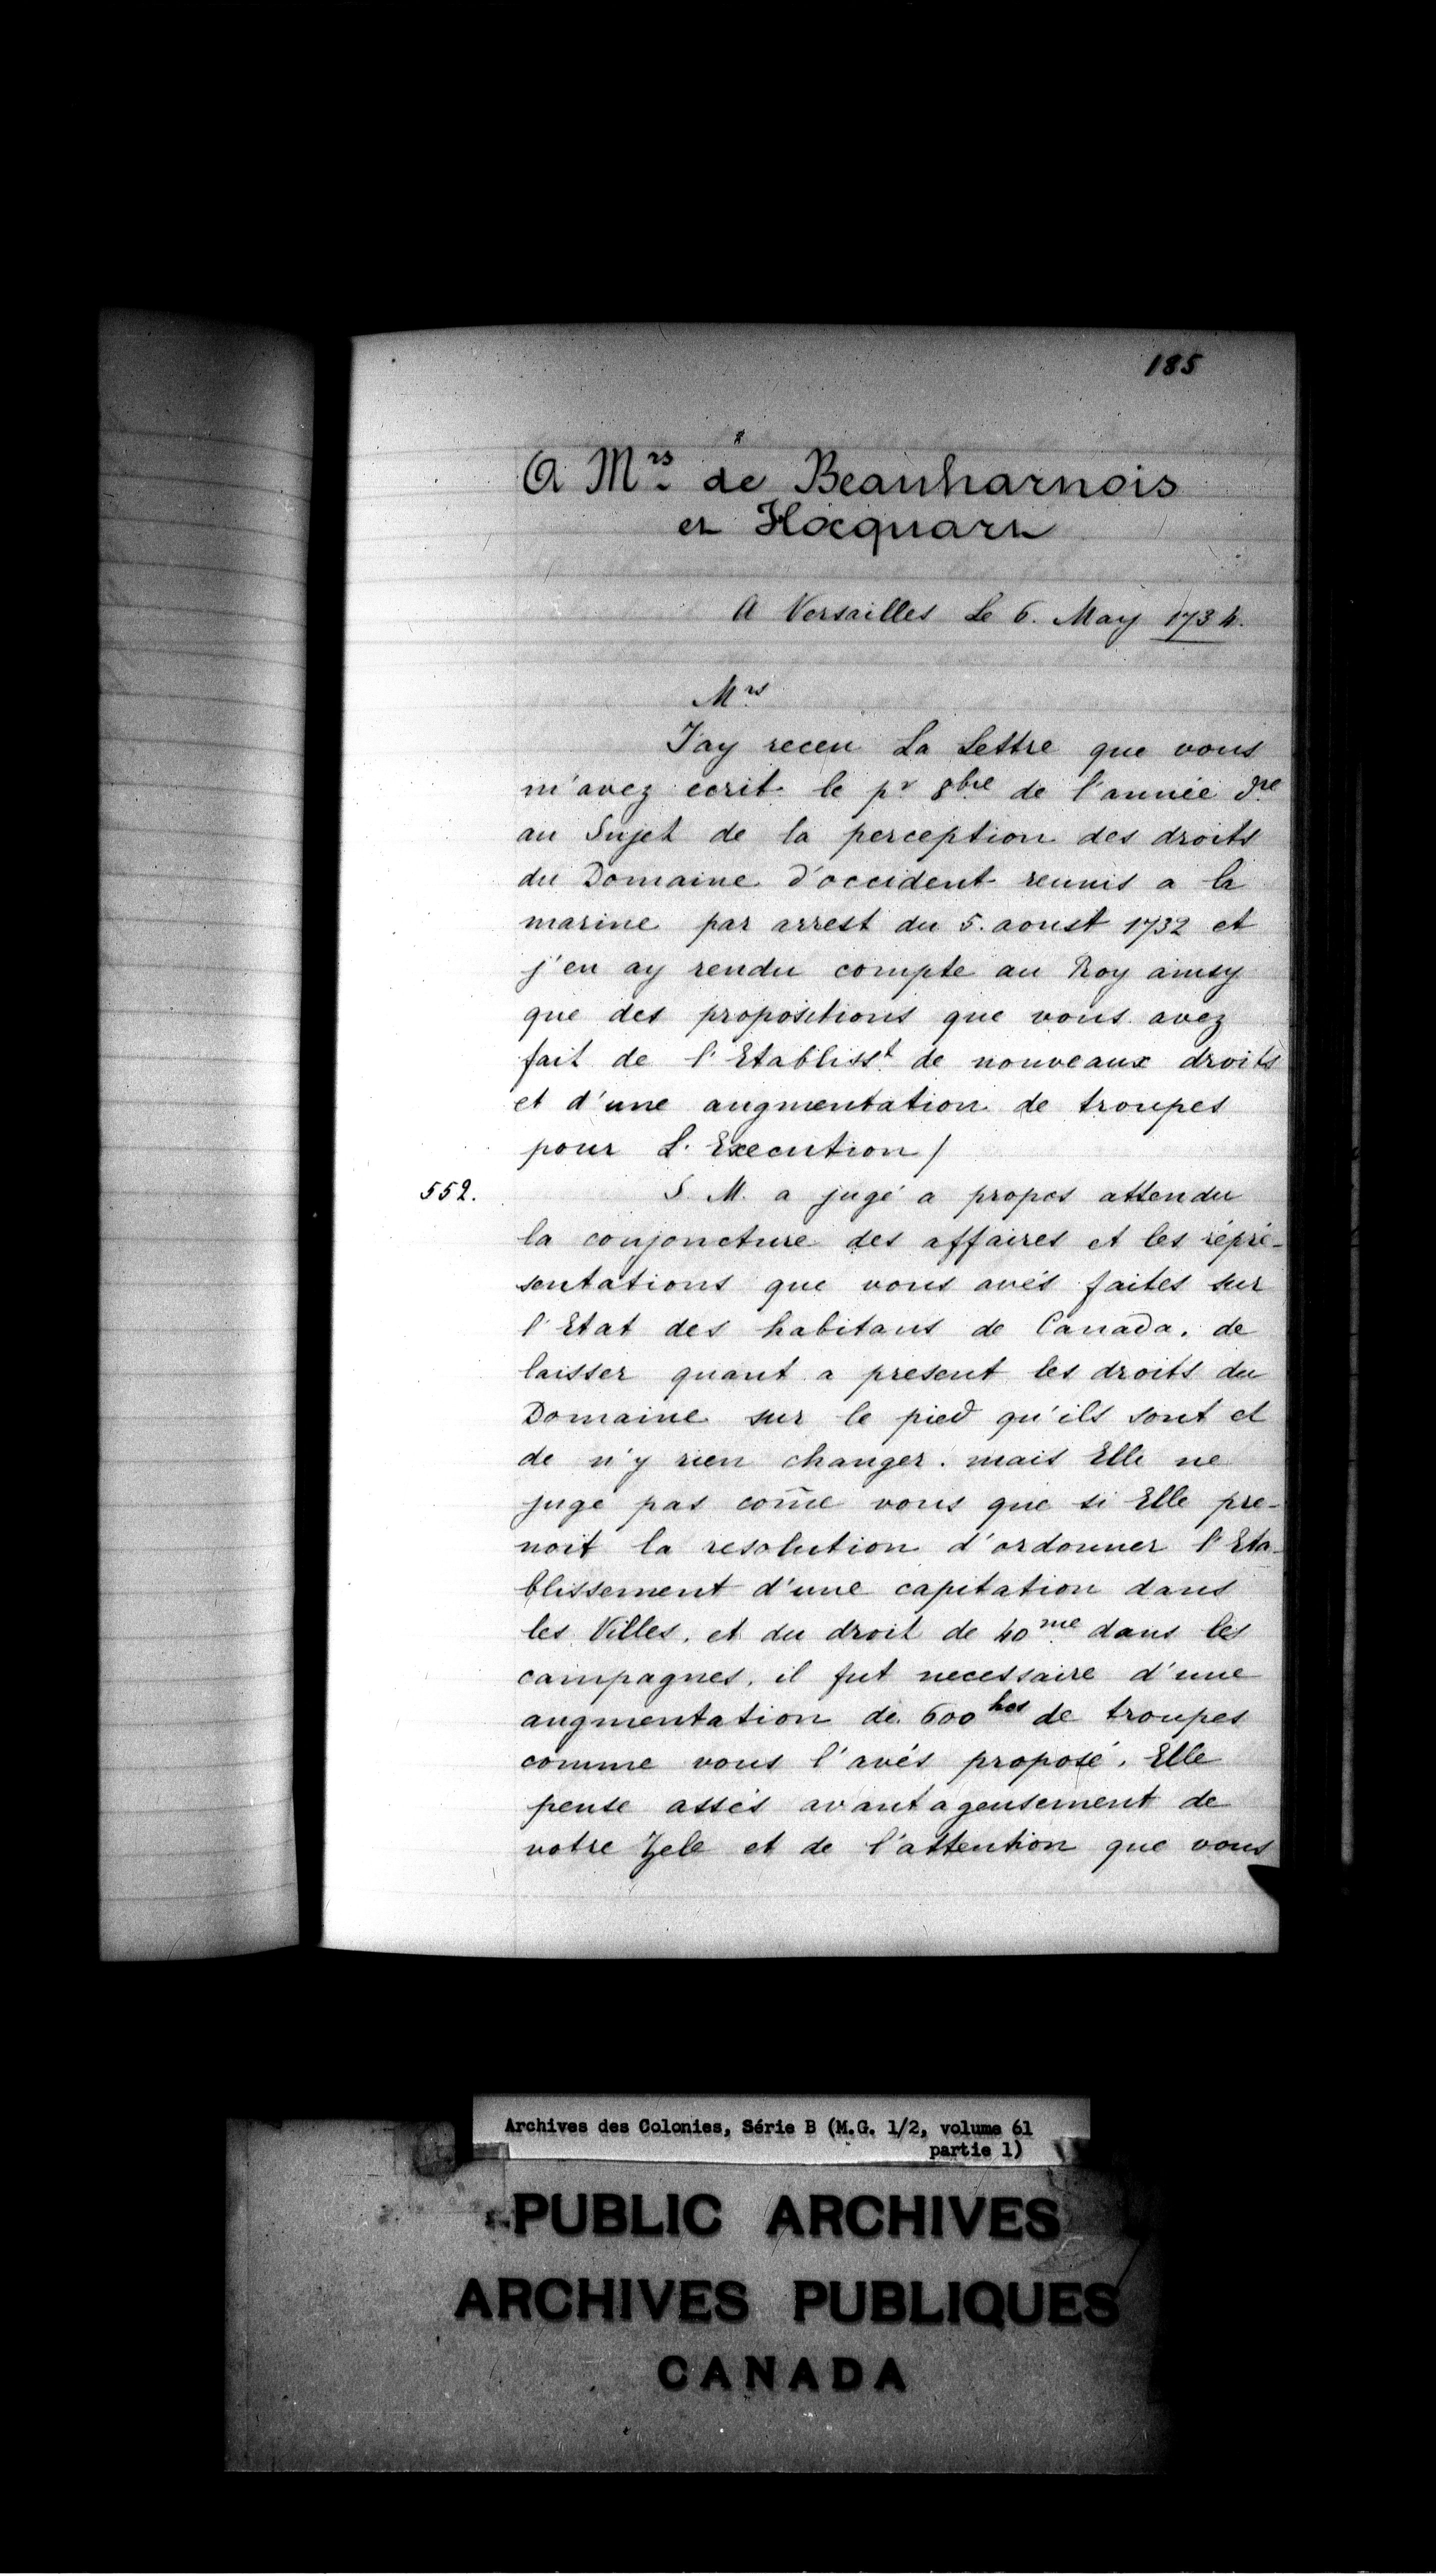 185
A Mrs de Beauharnois
et Hocquart
A Versailles Le 6. May 1734.
Mrs
J'ay receu La Lettre que vous
m'avez ecrit le pr 8bre de l'année dre
au Sujet de la perception des droits
du Domaine d'occident reunis a la
marine par arrest du 5. aoust 1732 et
j'en ay rendu compte au Roy ainsy
que des propositions que vous avez
fait de l'Etablisst de nouveaux droits
et d'une augmentation de troupes
pour L'Execution /
552. S. M. a jugé a propos attendu
la conjoncture des affaires et les répré-
sentations que vous avés faites sur
l'Etat des habitans de Canada, de
laisser quant a present les droits du
Domaine sur le pied qu'ils sont et
de n'y rien changer. mais Elle ne
juge pas com̄e vous que si Elle pre-
noit la resolution d'ordonner l'Eta-
blissement d'une capitation dans
les Villes, et du droit de 40me dans les
campagnes, il fut necessaire d'une
augmentation de 600 hes de troupes
comme vous l'avés proposé, Elle
pense assés avantageusement de
votre Zele et de l'attention que vous
Archives des Colonies, Série B (M.G. 1/2, volume 61
partie 1)
PUBLIC ARCHIVES
ARCHIVES PUBLIQUES
CANADA